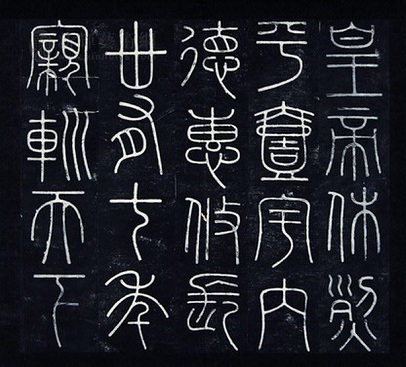 皇帝休烈
平壹宇內
德惠攸長
卅有七年
親巡天下